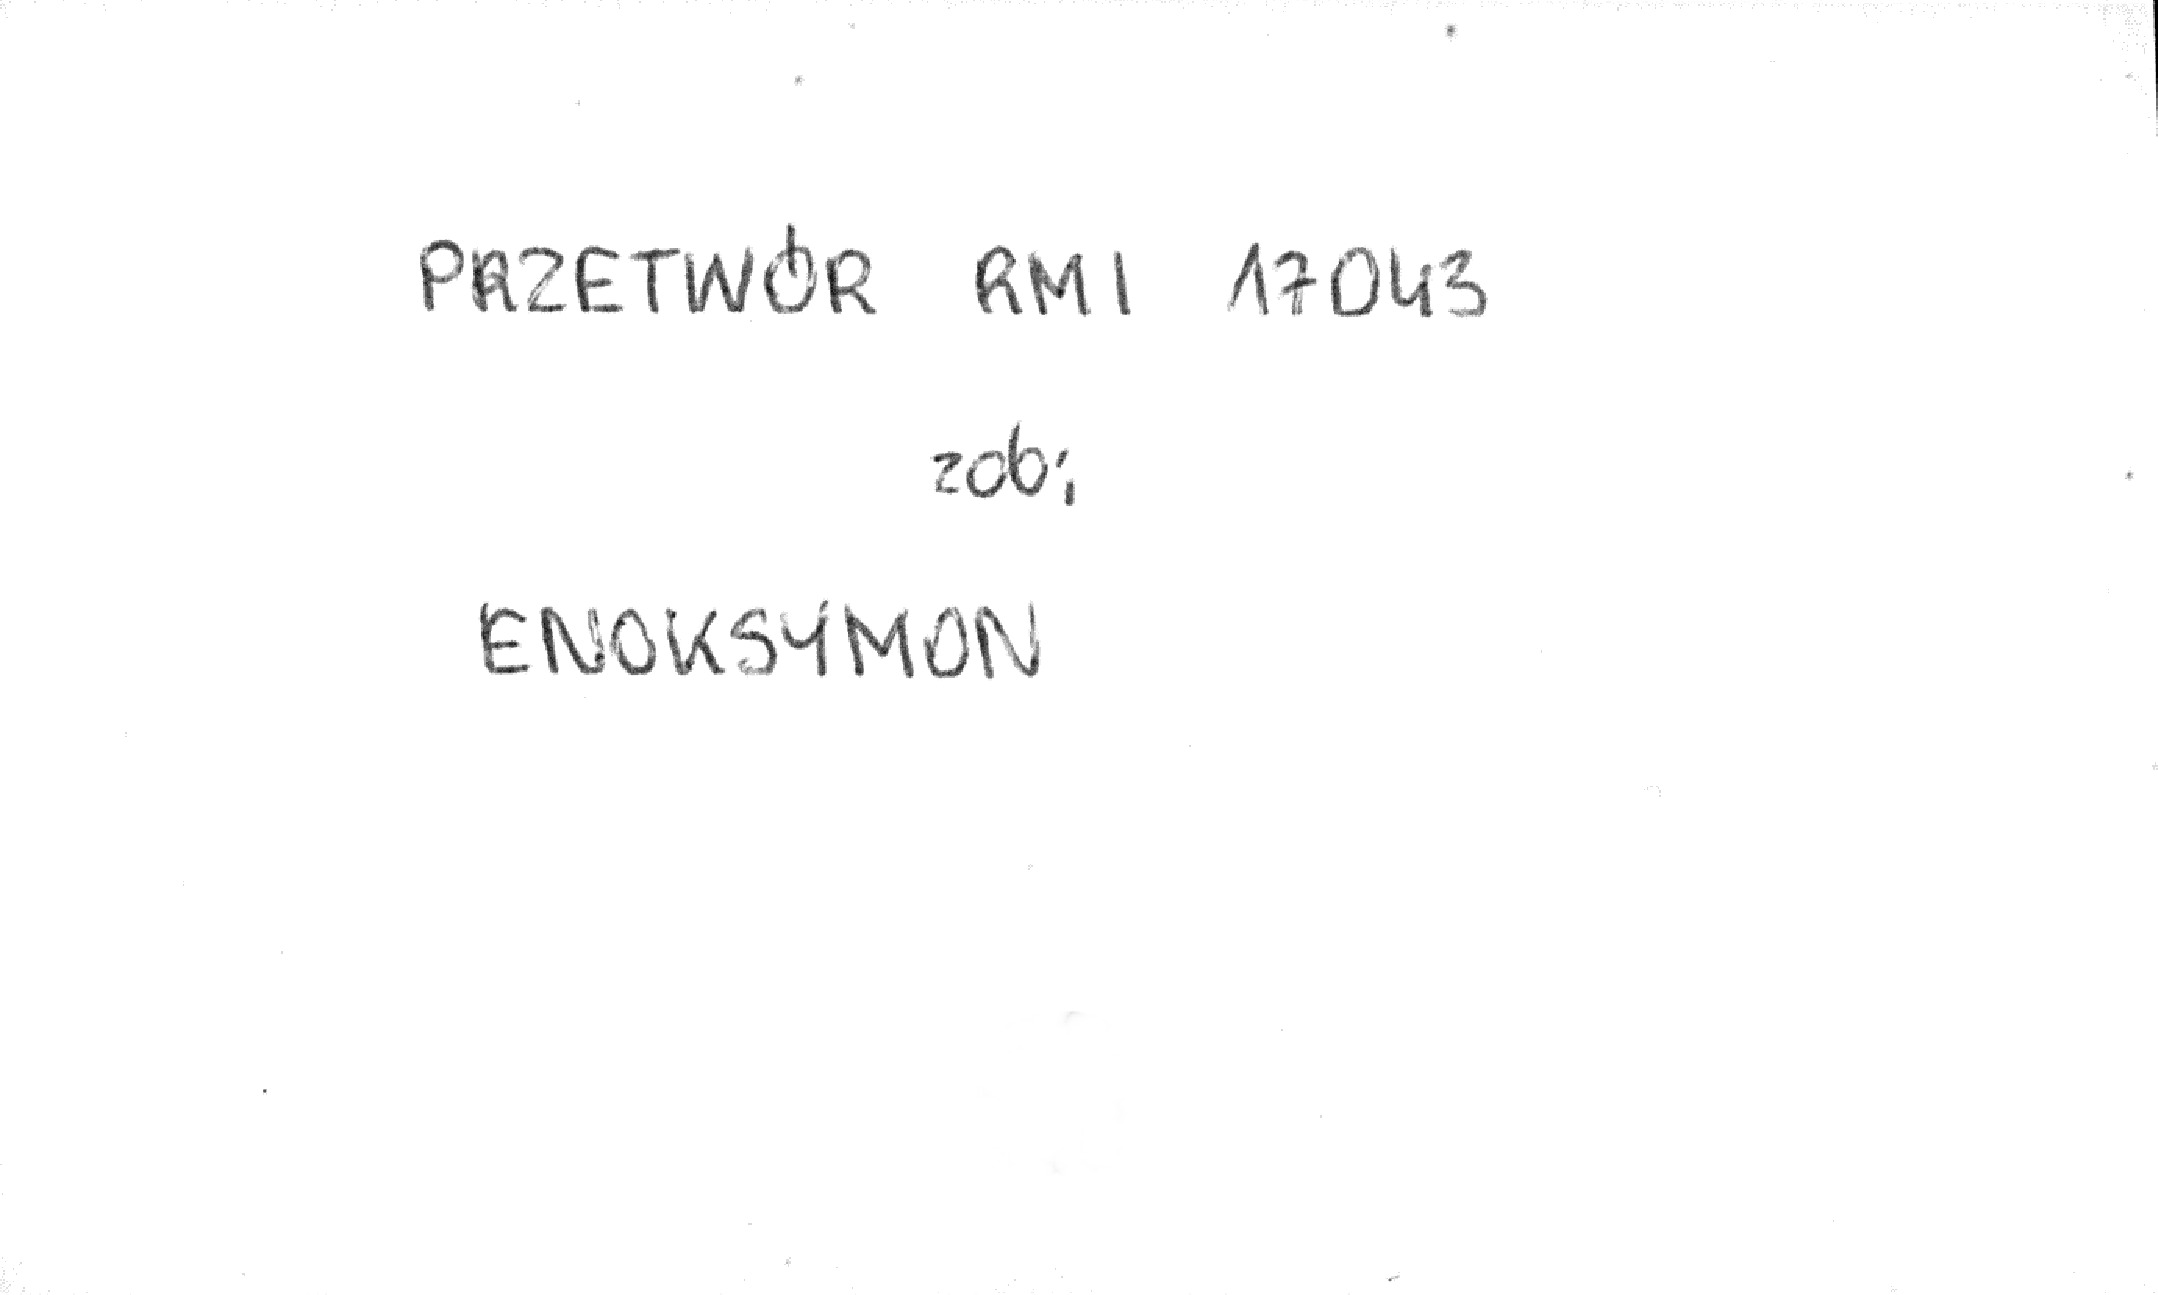 PRZETWÓR RMI 17043
zob;
ENOKSYMON